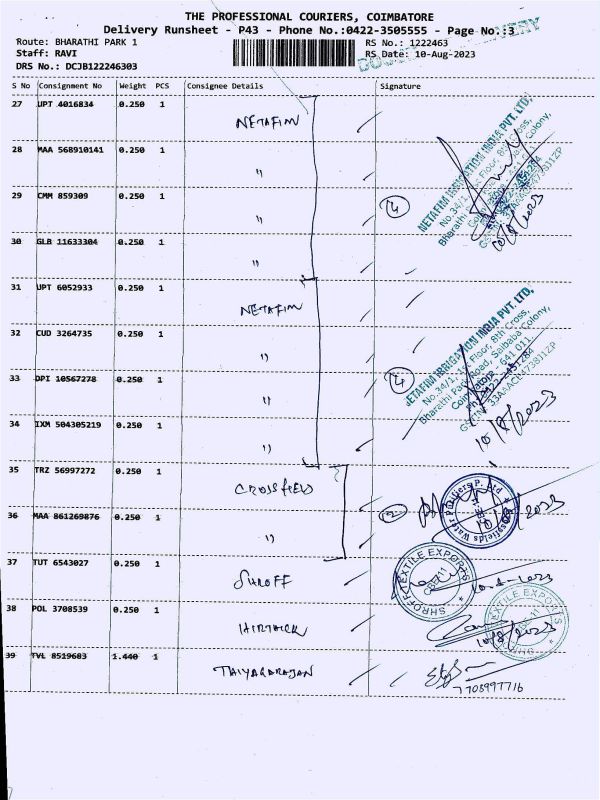 THE PROFESSIONAL COURIERS, COIMBATORE
Delivery Runsheet - P43 - Phone No.:0422-3505555 - Page No.:3
Route: BHARATHI PARK 1 RS No.: 1222463
Staff: RAVI RS Date: 10-Aug-2023
DRS No.: DCJB122246303
S No Consignment No Weight PCS Consignee Details Signature
27 UPT 4016834 0.250 1
NETAFIM
28 MAA 568910141 0.250 1
"
29 CMM 859309 0.250 1
" 4
30 GLB 11633304 0.250 1
"
NETAFIM IRRIGATION INDIA PVT. LTD,
10/8/2023
31 UPT 6052933 0.250 1
NETAFIM
32 CUD 3264735 0.250 1
"
33 DPI 10567278 0.250 1
" 4
34 IXM 504305219 0.250 1
"
NETAFIM IRRIGATION INDIA PVT. LTD,
No.34/1, 1st Floor, 8th Cross,
Bharathi Park Road, Saibaba Colony,
Coimbatore - 641 011
10/8/2023
35 TRZ 56997272 0.250 1
CROSSFIELD
36 MAA 861269876 0.250 1
" 2
37 TUT 6543027 0.250 1
SHROFF
SHROFF TEXTILE EXPORTS
10-8-2023
38 POL 3708539 0.250 1
HIRTHICK
TEXTILE EXPORTS
10/8/2023
39 TVL 8519683 1.440 1
THIYAGARAJAN
7708997716